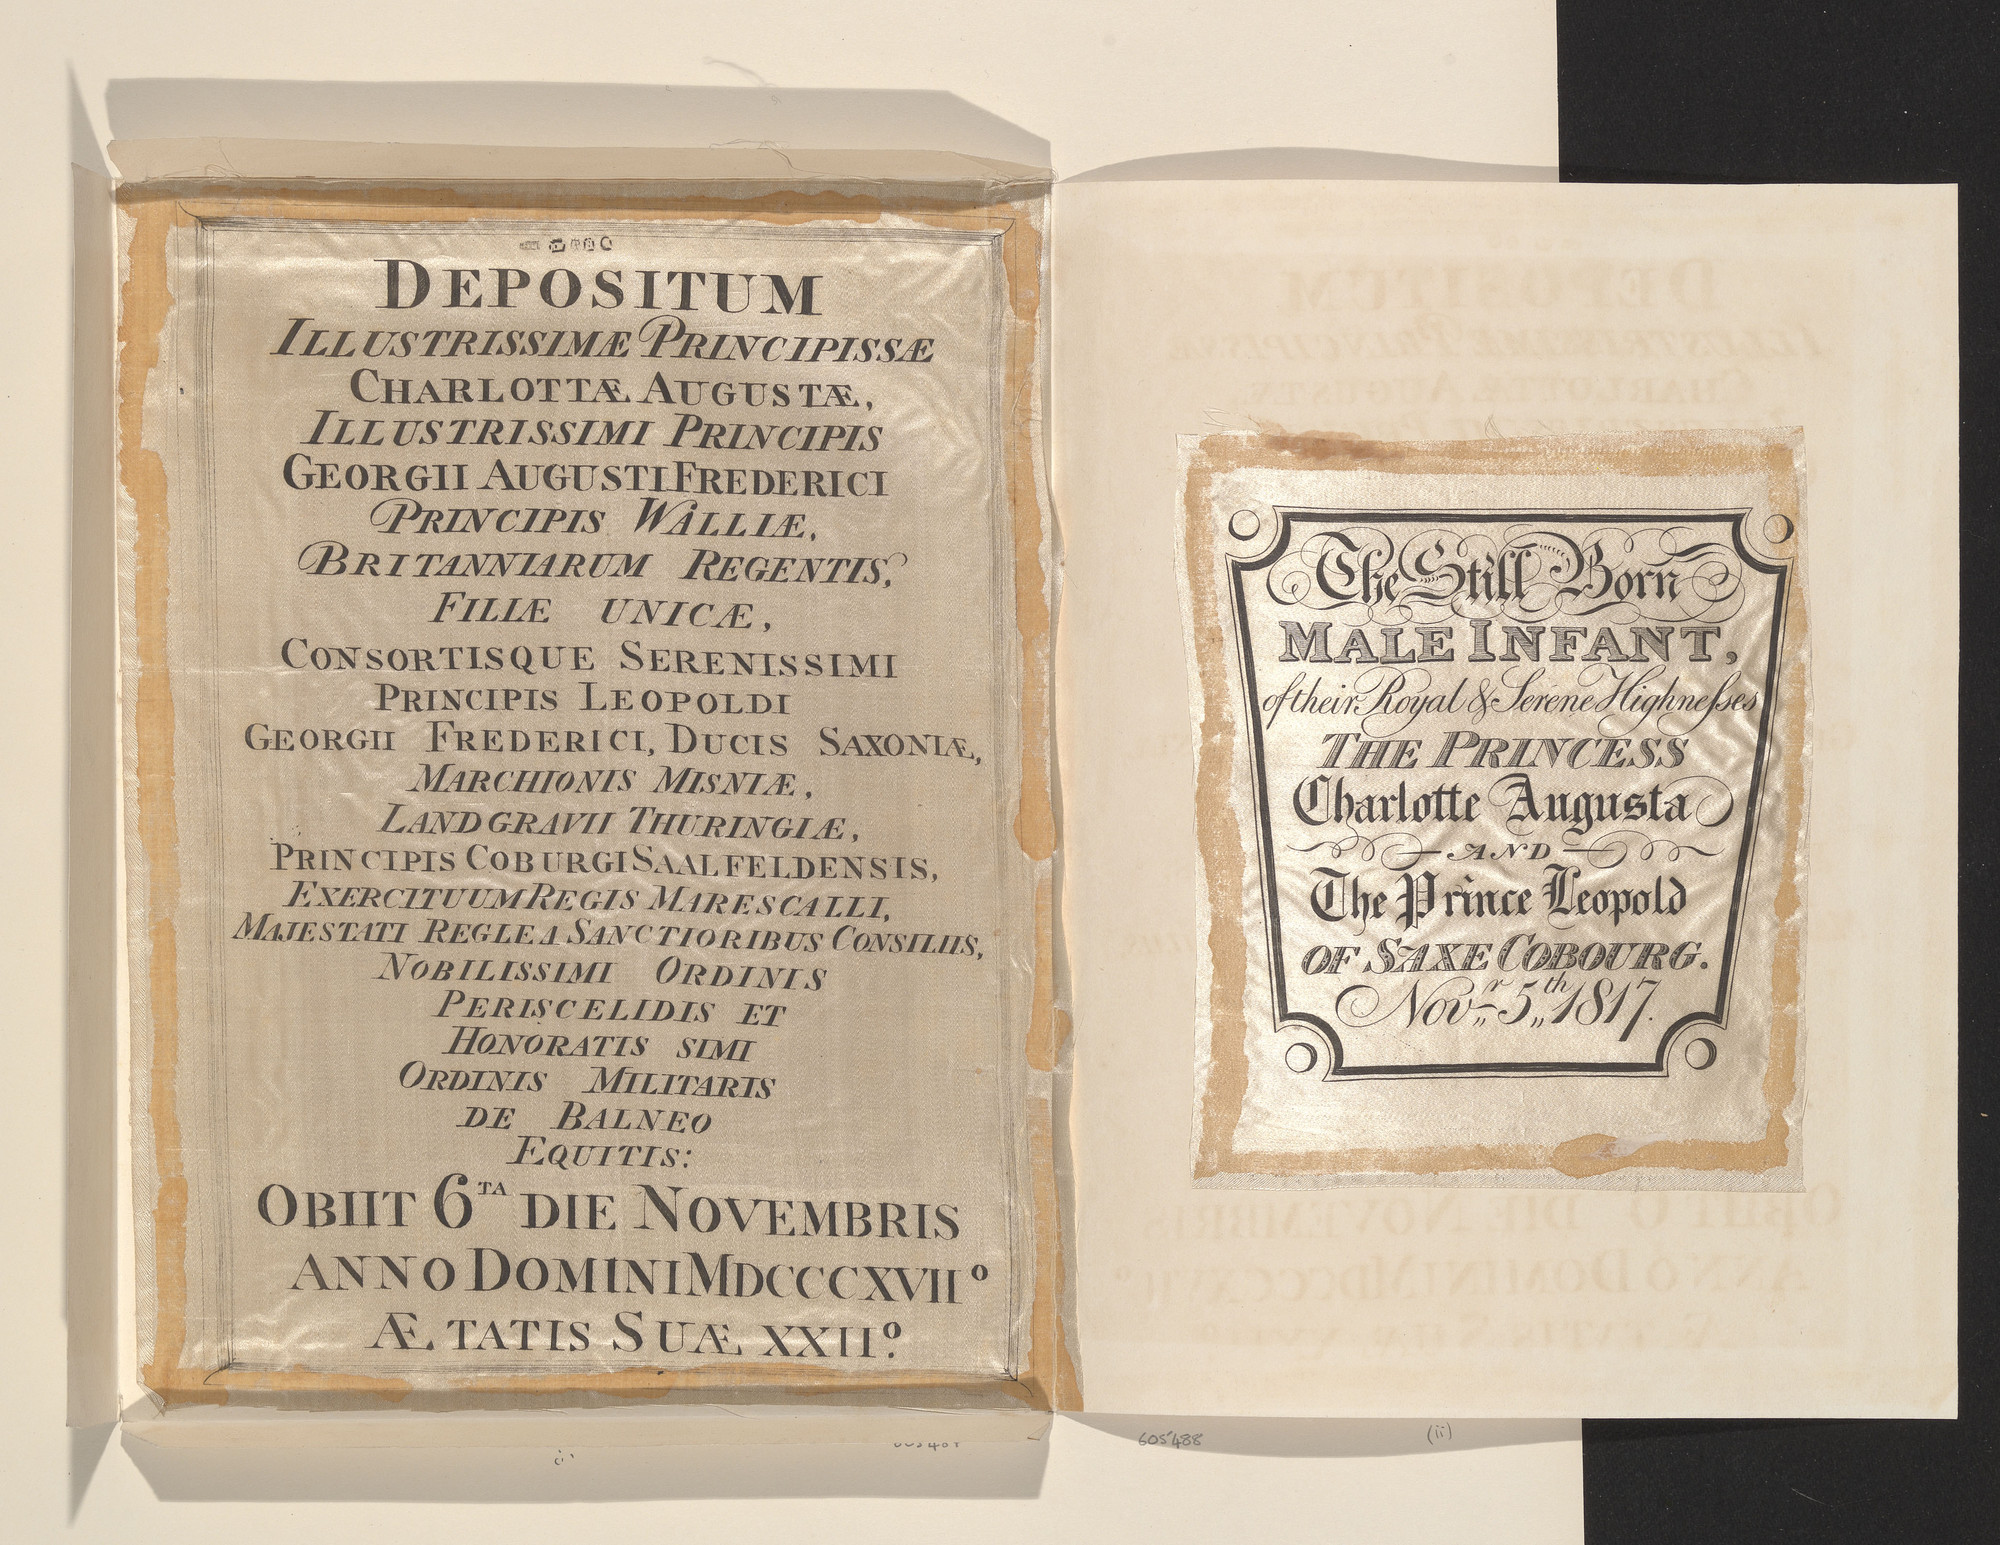 DEPOSITUM
ILLUSTRISSIMÆ PRINCIPISSÆ
CHARLOTTÆ AUGUSTÆ,
ILLUSTRISSIMI PRINCIPIS
GEORGII AUGUSTI FREDERICI
PRINCIPIS WALLIÆ,
BRITANNIARUM REGENTIS,
FILIÆ UNICÆ,
CONSORTISQUE SERENISSIMI
PRINCIPIS LEOPOLDI
GEORGII FREDERICI, DUCIS SAXONIÆ,
MARCHIONIS MISNIÆ,
LANDGRAVII THURINGIÆ,
PRINCIPIS COBURGI SAALFELDENSIS,
EXERCITUUM REGIS MARESCALLI,
MAJESTATI REGLEA SANCTIORIBUS CONSILIIS,
NOBILISSIMI ORDINIS
PERISCELIDIS ET
HONORATIS SIMI
ORDINIS MILITARIS
DE BALNEO
EQUITIS:
OBIIT 6TA DIE NOVEMBRIS
ANNO DOMINI MDCCCXVIIº
ÆTATIS SUÆ XXIIº.
The Still Born
MALE INFANT,
of their Royal & Serene Highneſses
THE PRINCESS
Charlotte Augusta
AND
The Prince Leopold
OF SAXE COBOURG.
Novr. 5th 1817.
605488
(ii)